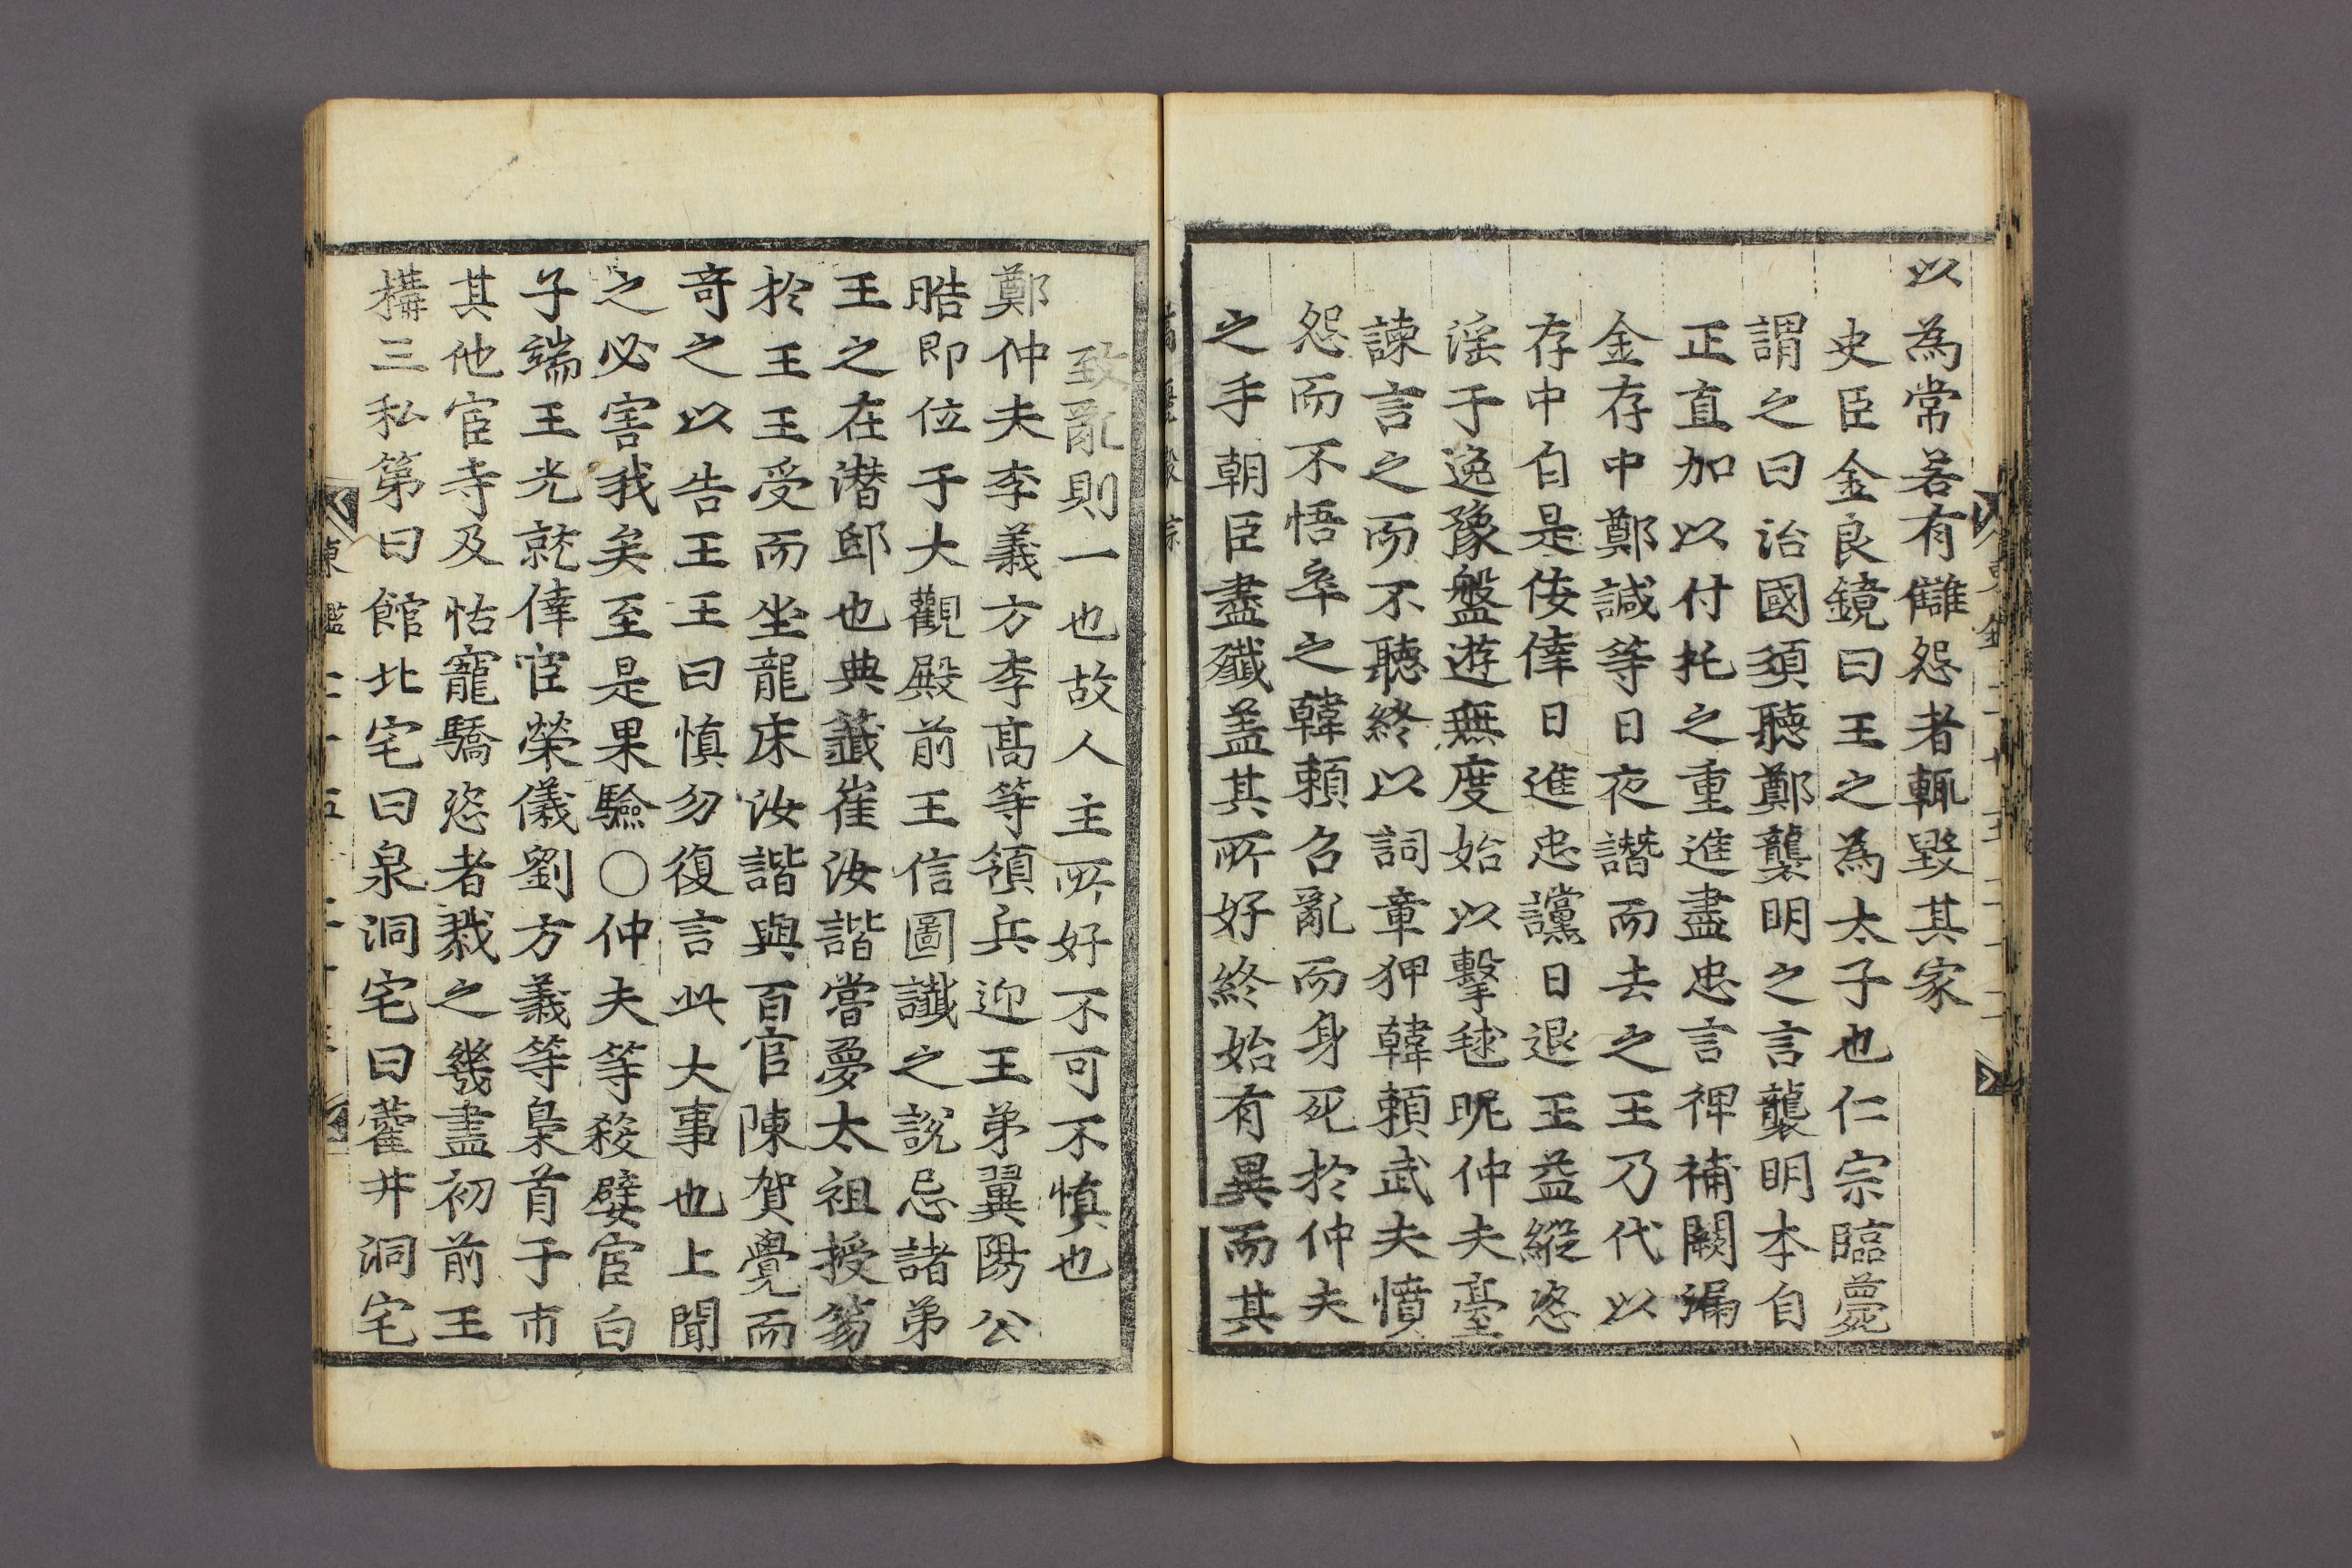 以為常若有讎怨者輒毀其家
史臣金良鏡曰王之為太子也仁宗臨薨
謂之曰治國須聽鄭襲明之言襲明本自
正直加以付托之重進盡忠言裨補闕漏
金存中鄭諴等日夜譖而去之王乃代以
存中自是侫倖日進忠讜日退王益縱恣
淫于逸豫盤遊無度始以擊毬昵仲夫臺
諫言之而不聽終以詞章狎韓賴武夫憤
怨而不悟卒之韓賴召亂而身死於仲夫
之手朝臣盡殲盖其所好終始有異而其
致亂則一也故人主所好不可不慎也
鄭仲夫李義方李高等領兵迎王弟翼陽公
晧即位于大觀殿前王信圖讖之說忌諸弟
王之在潛邸也典籤崔汝諧嘗夢太祖授笏
於王王受而坐龍床汝諧與百官陳賀覺而
奇之以告王王曰慎勿復言此大事也上聞
之必害我矣至是果驗○仲夫等殺嬖宦白
子端王光就倖宦榮儀劉方義等梟首于市
其他宦寺及怙寵驕恣者戮之幾盡初前王
構三私第曰館北宅曰泉洞宅曰藿井洞宅